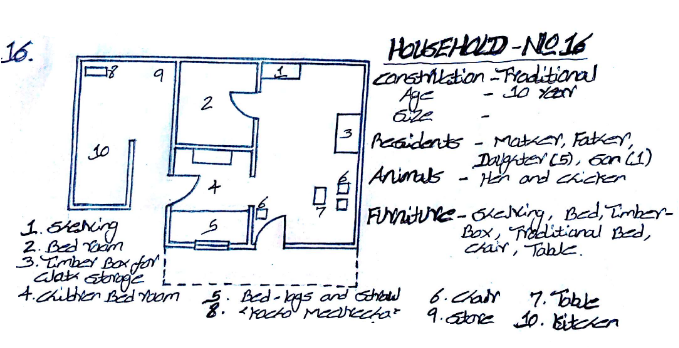 16.
HOUSEHOLD - NO 16
Construction - Traditional
Age - 10 Year
Size -
Residents - Mother, Father,
Daughter (5), Son (1)
Animals - Hen and chicken
Furniture - Shelving, Bed, Timber-
Box, Traditional Bed,
Chair, Table.
8
9
1
2
3
10
4
6
6
7
5
1. Shelving
2. Bed room
3. Timber Box for
Cloth storage
4. Children Bed room
5. Bed-logs and straw
6. Chair
7. Table
8.
9. Store
10. Kitchen